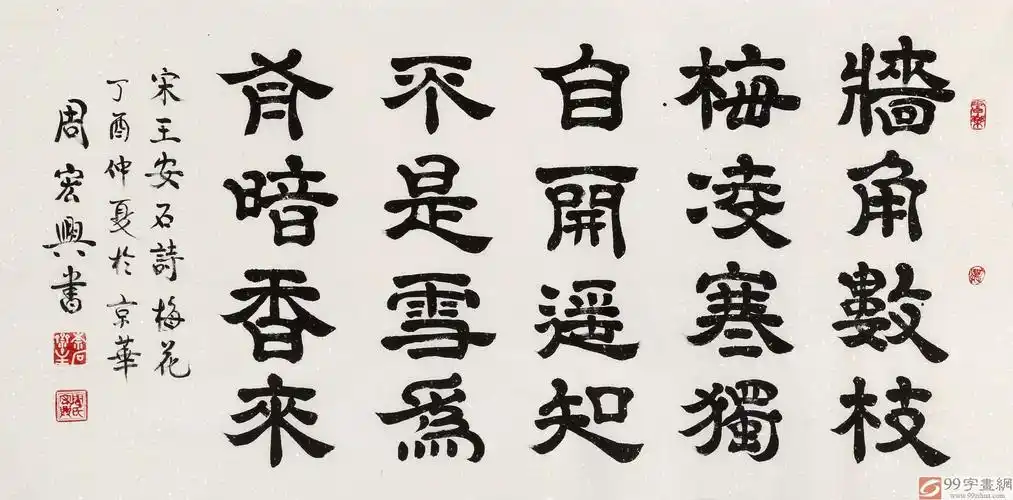 牆角數枝
梅凌寒獨
自開遥知
不是雪爲
有暗香來
宋王安石詩梅花
丁酉仲夏於京華
周宏興書
99字畫網